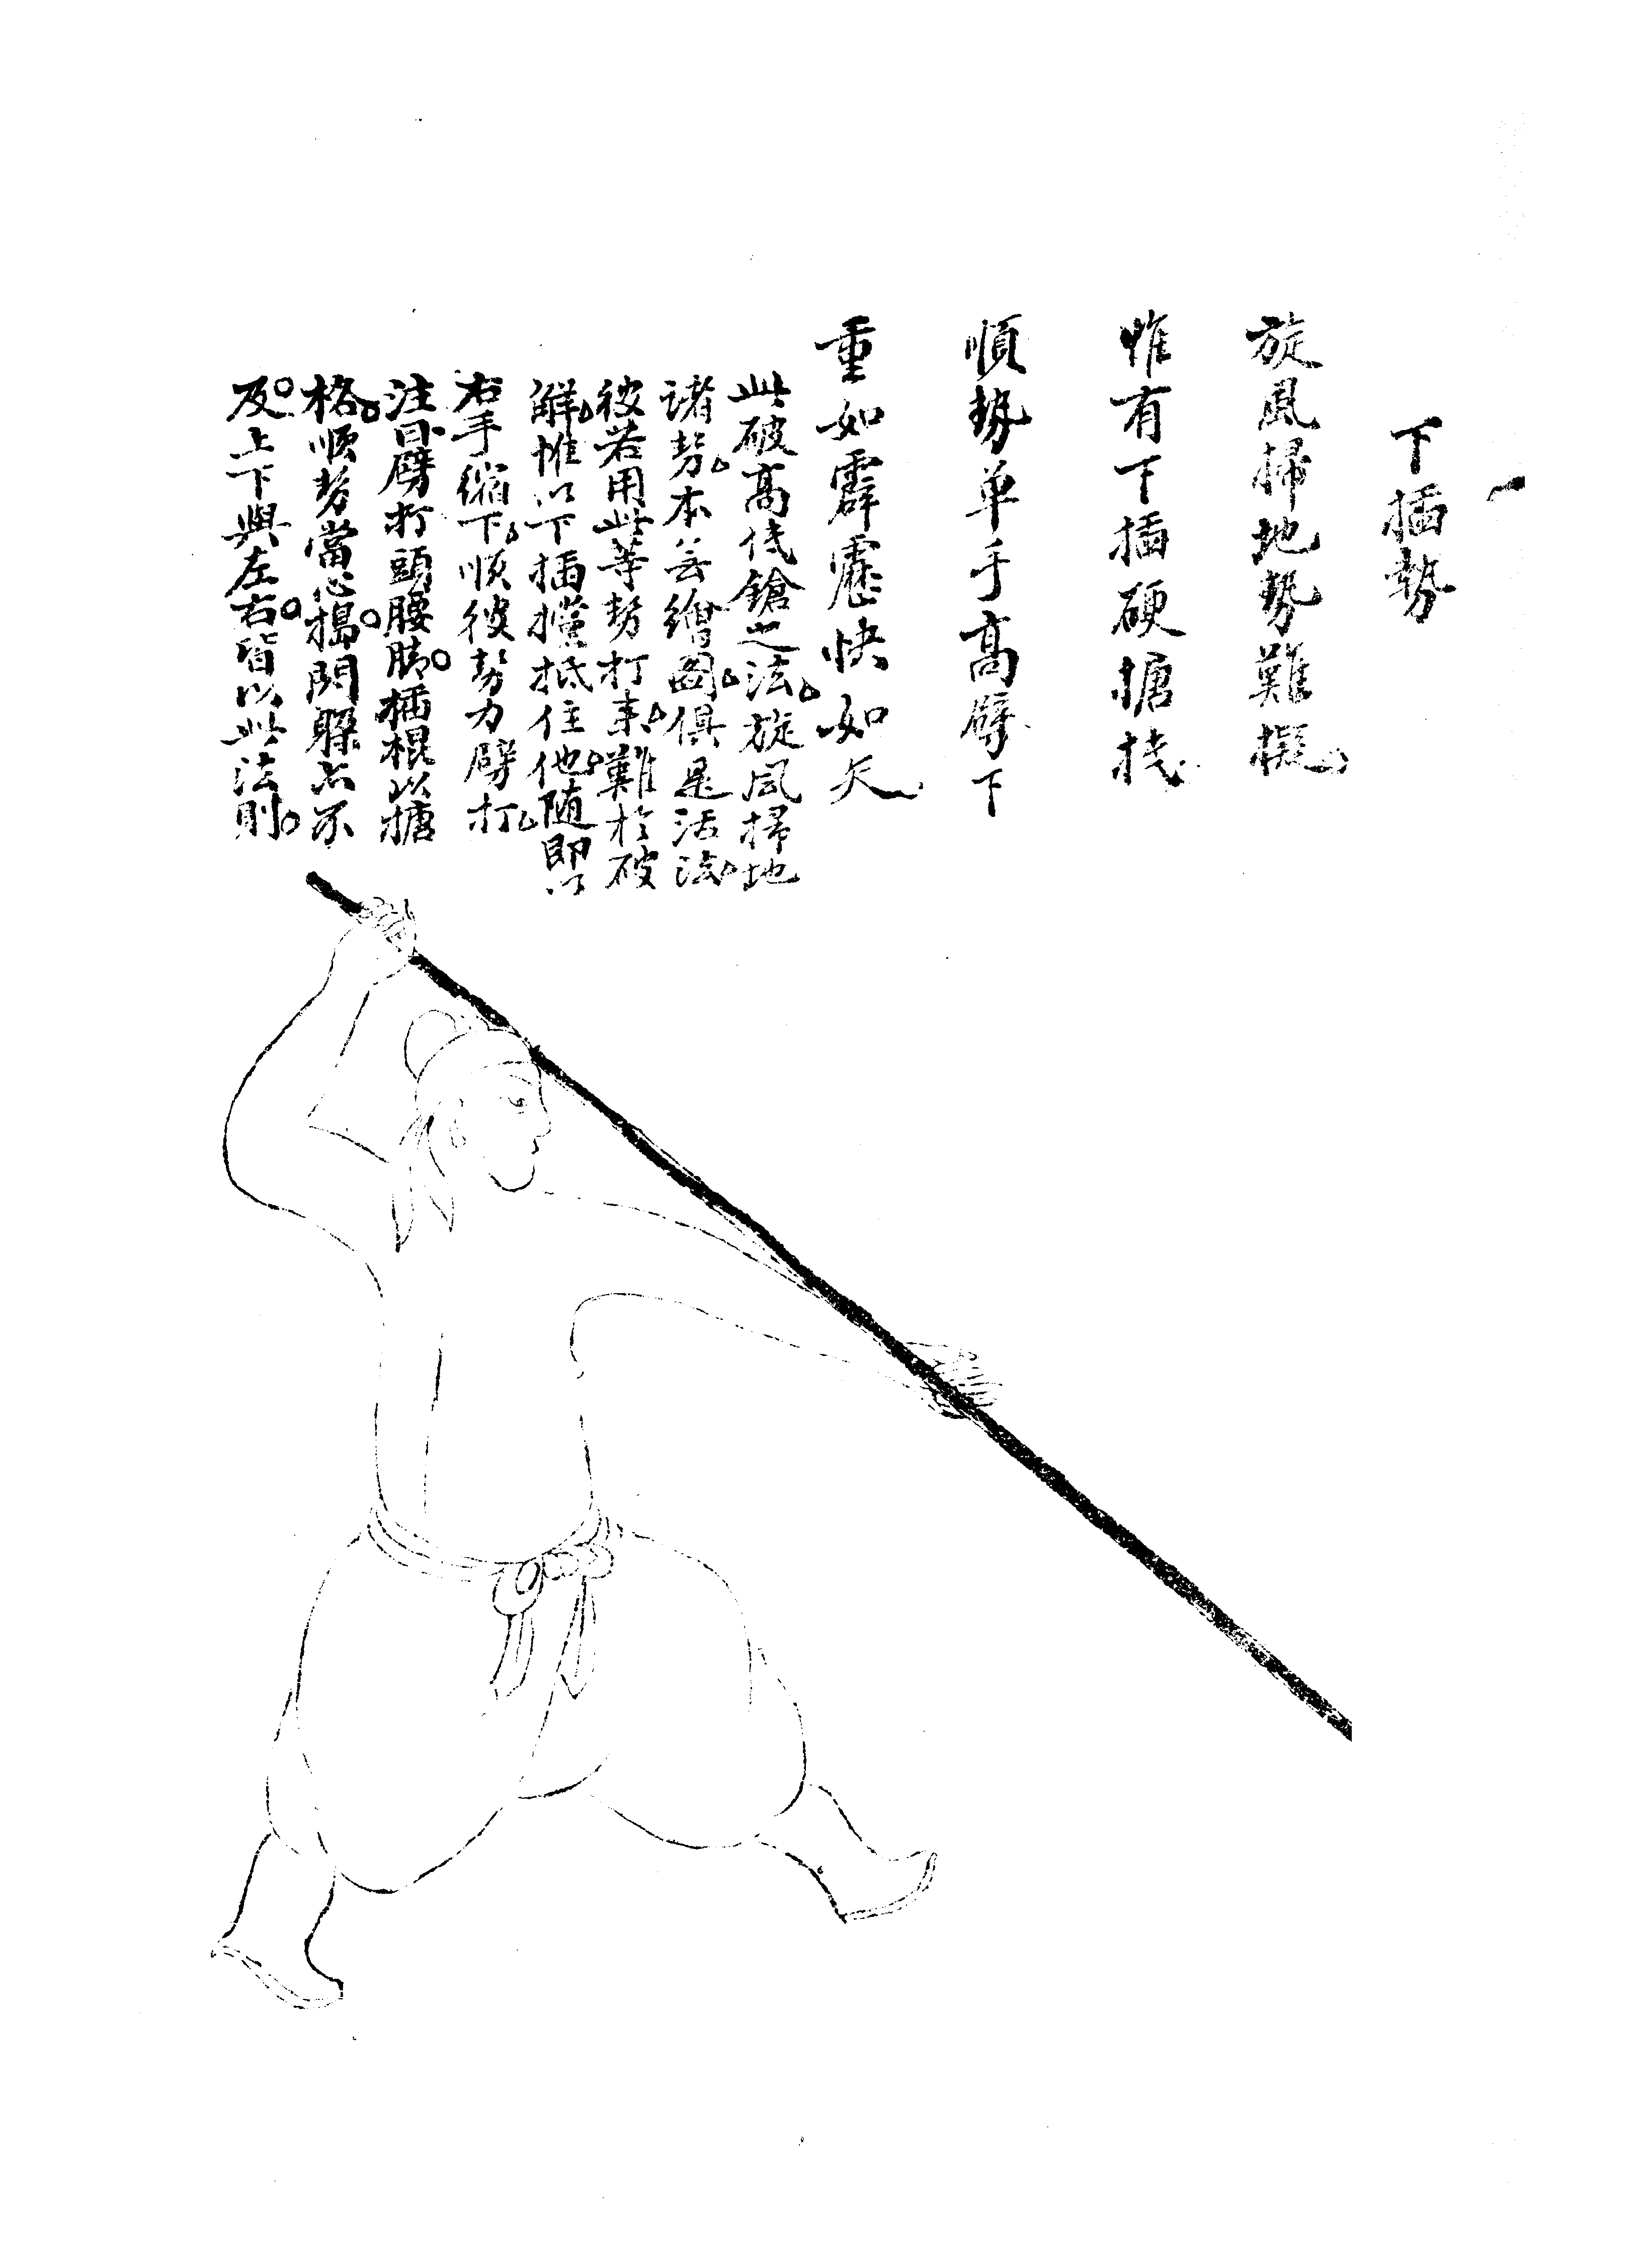 下插勢
旋風掃地勢難擬
惟有下插硬搪拔
順勢单手高劈下
重如霹靂快如矢
此破高低鎗之法旋風掃地
诸势本芸繪圖俱是活法
彼若用此等势打来難於破
解惟以下插攩抵住他随即以
右手缩下顺彼势力劈打
注曰劈打頭腰脚插棍以搪
格顺势當心搗閃躱亦不
及上下與左右皆以此法則